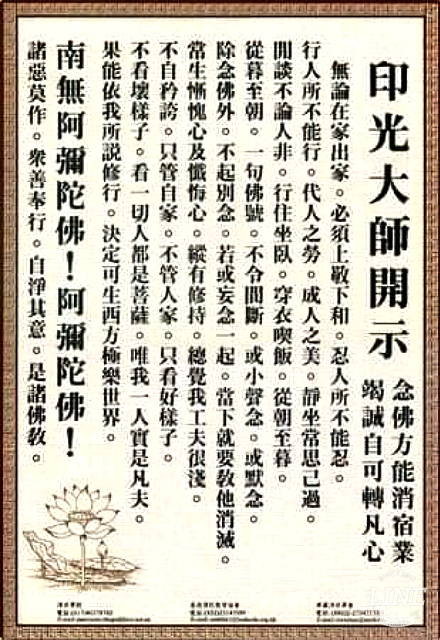 印光大師開示
念佛方能消宿業
竭誠自可轉凡心
無論在家出家。必須上敬下和。忍人所不能忍。
行人所不能行。代人之勞。成人之美。靜坐常思己過。
閒談不論人非。行住坐臥。穿衣喫飯。從朝至暮。
從暮至朝。一句佛號。不令間斷。或小聲念。或默念。
除念佛外。不起別念。若或妄念一起。當下就要教他消滅。
常生慚愧心及懺悔心。縱有修持。總覺我工夫很淺。
不自矜誇。只管自家。不管人家。只看好樣子。
不看壞樣子。看一切人都是菩薩。唯我一人實是凡夫。
果能依我所說修行。決定可生西方極樂世界。
南無阿彌陀佛！阿彌陀佛！
諸惡莫作。眾善奉行。自淨其意。是諸佛教。